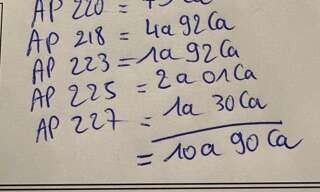 AP 220 = 75 Ca
AP 218 = 4a 92 Ca
AP 223 = 1a 92 Ca
AP 225 = 2a 01 Ca
AP 227 = 1a 30 Ca
= 10a 90 Ca